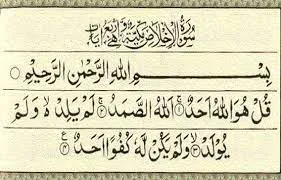 سُوْرَةُ الْاِخْلَاصِ مَكِّيَّةٌ وَّهِيَ اَرْبَعُ اٰيَاتٍ
بِسْمِ اللّٰهِ الرَّحْمٰنِ الرَّحِيْمِ ○
قُلْ هُوَ اللّٰهُ اَحَدٌ ۝۱ اَللّٰهُ الصَّمَدُ ۝۲ لَمْ يَلِدْ ۙ وَلَمْ
يُوْلَدْ ۝۳ وَلَمْ يَكُنْ لَّهٗ كُفُوًا اَحَدٌ ۝۴